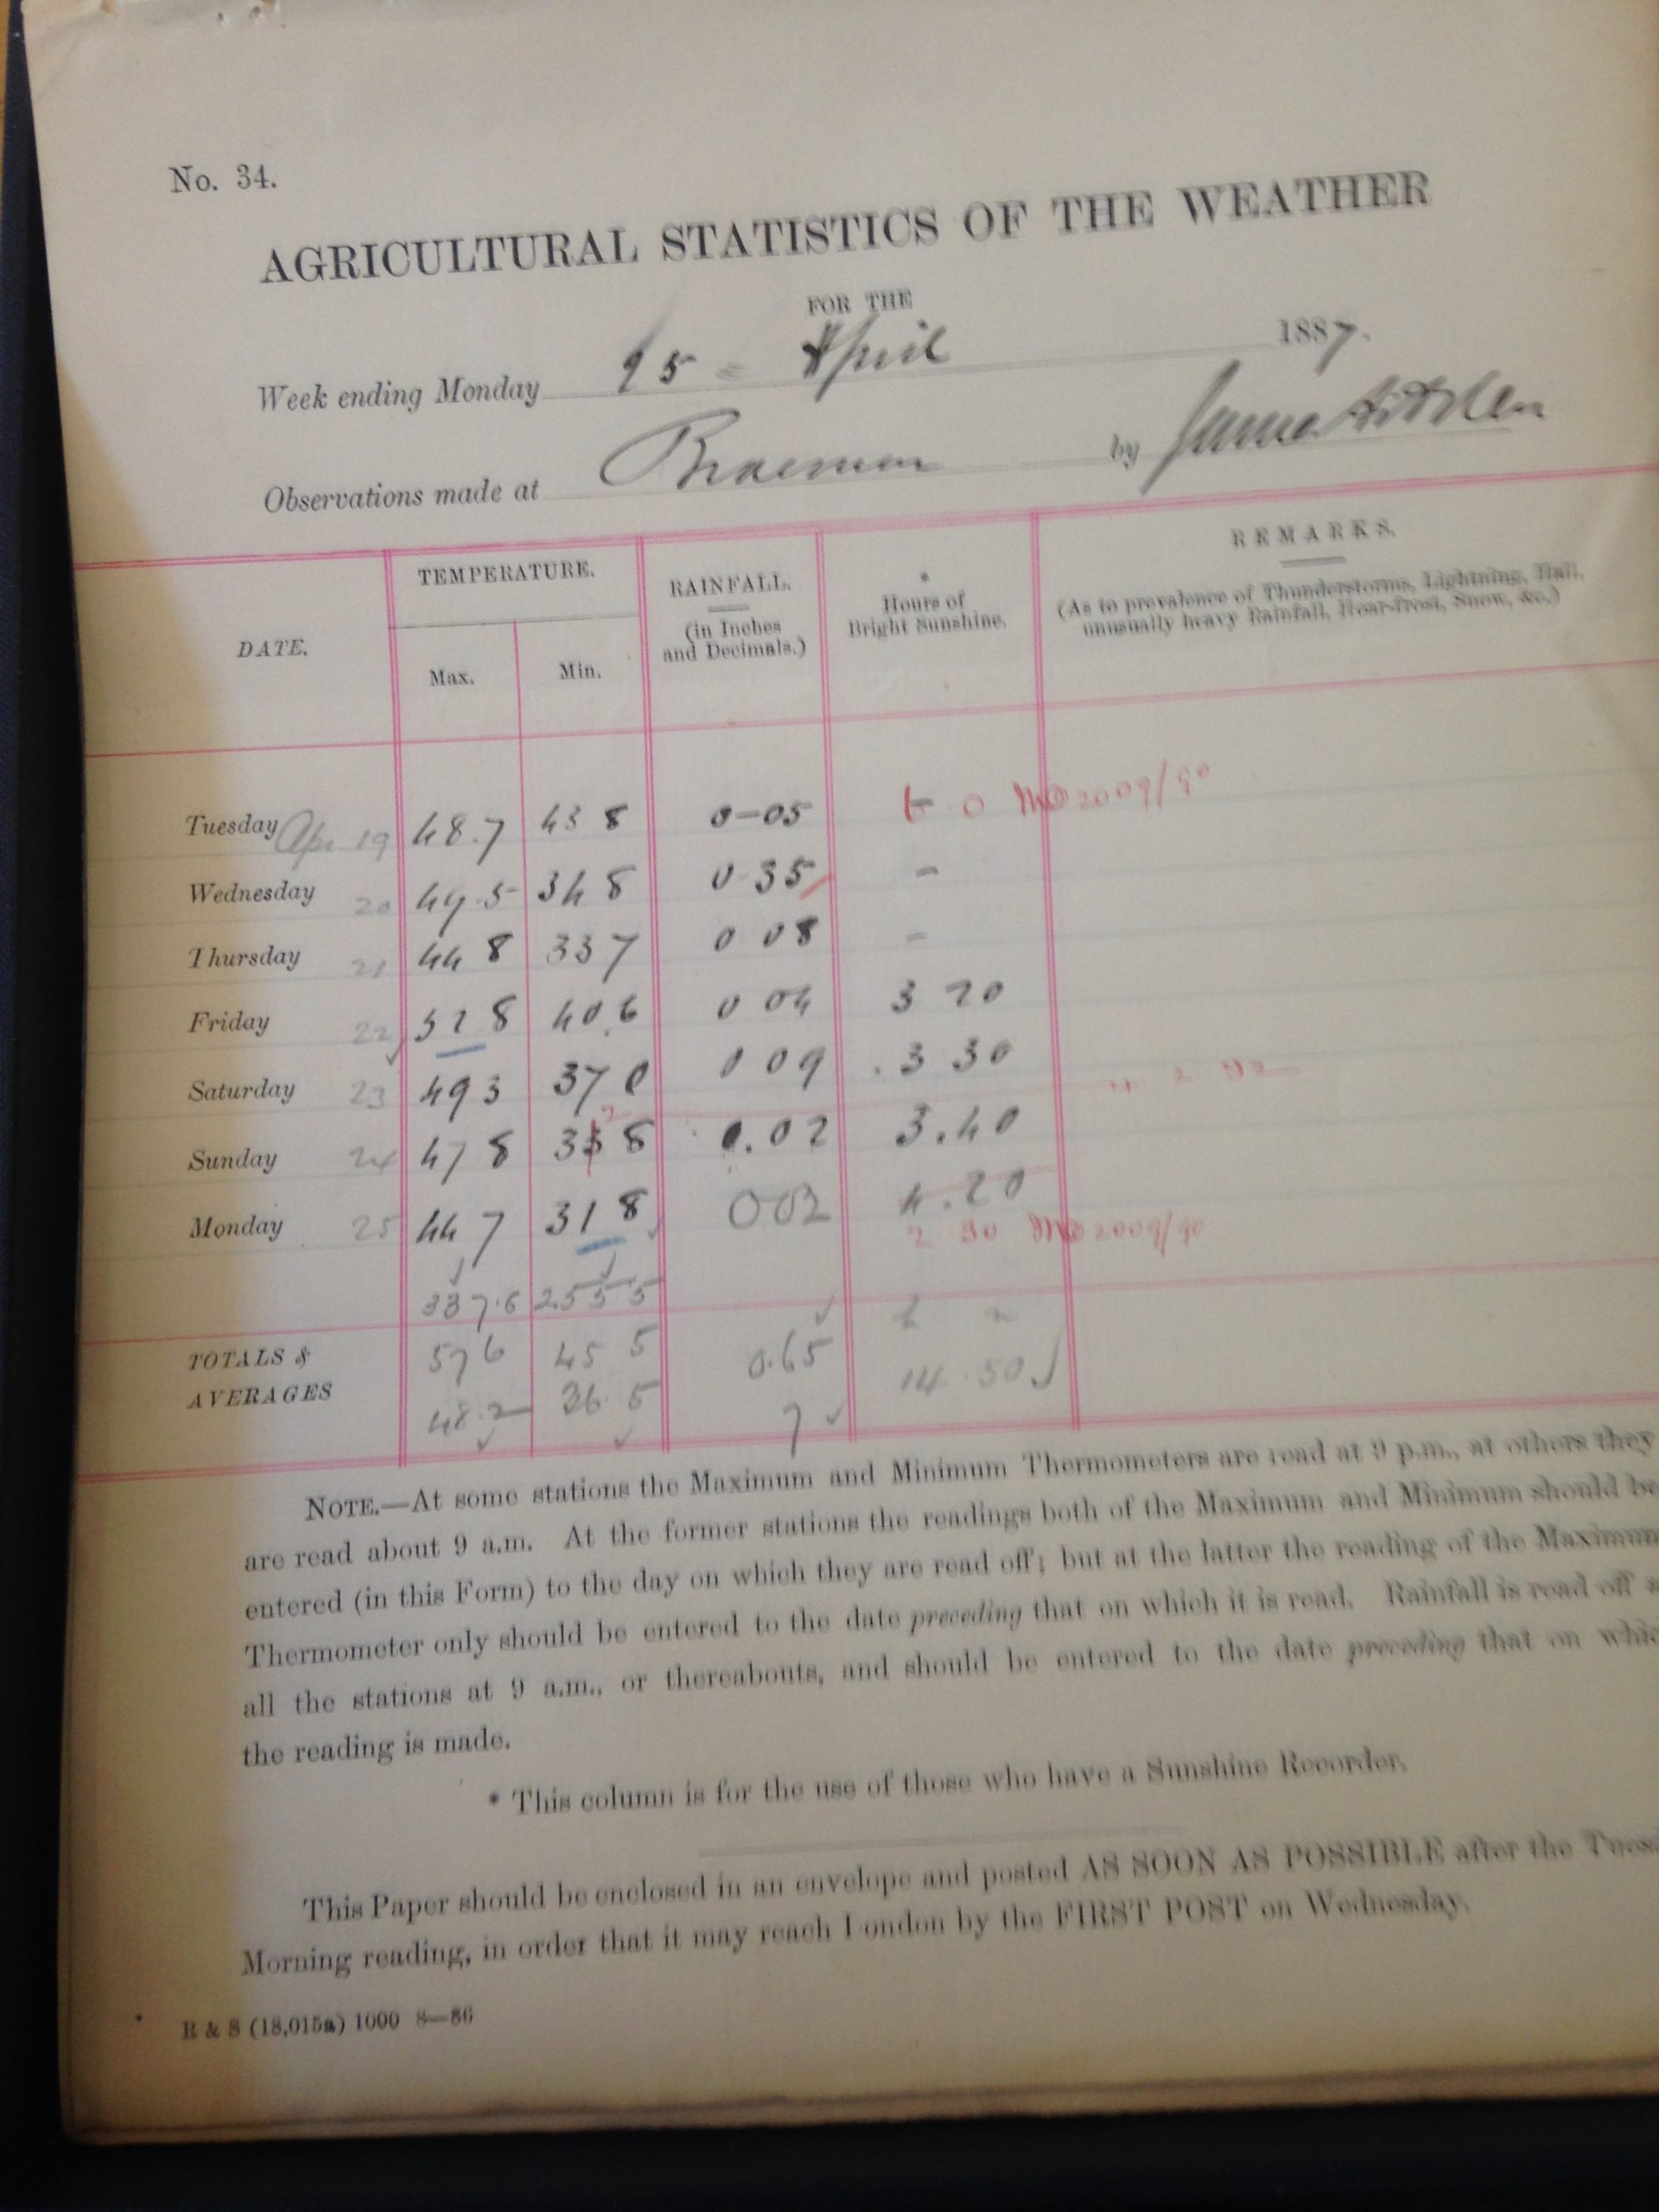 No. 34.
AGRICULTURAL STATISTICS OF THE WEATHER
FOR THE
Week ending Monday 25 April 1887.
Observations made at Braemar by James Aitken
DATE.
TEMPERATURE.
Max. Min.
RAINFALL.
(in Inches
and Decimals.)
*
Hours of
Bright Sunshine.
REMARKS.
(As to prevalence of Thunderstorms, Lightning, Hail,
unusually heavy Rainfall, Hoar-frost, Snow, &c.)
Tuesday Apr 19 48.7 43 8 0-05 0 MO 2009/90
Wednesday 20 49.5 34 8 0 35 -
Thursday 21 44 8 33 7 0 08 -
Friday 22 52 8 40.6 0 04 3 20
Saturday 23 49 3 37 0 0 09 3 30
Sunday 24 47 8 8 0.02 3.40
Monday 25 44 7 31 8 002 4.20
2 30 MO 2009/90
337.6 255 5
h m
TOTALS & 57 6 45 5 0.65 14.30
AVERAGES 48.2 36.5 7
NOTE.—At some stations the Maximum and Minimum Thermometers are read at 9 p.m., at others they
are read about 9 a.m. At the former stations the readings both of the Maximum and Minimum should be
entered (in this Form) to the day on which they are read off; but at the latter the reading of the Maximum
Thermometer only should be entered to the date preceding that on which it is read. Rainfall is read off a
all the stations at 9 a.m., or thereabouts, and should be entered to the date preceding that on whic
the reading is made.
* This column is for the use of those who have a Sunshine Recorder.
This Paper should be enclosed in an envelope and posted AS SOON AS POSSIBLE after the Tues
Morning reading, in order that it may reach London by the FIRST POST on Wednesday.
R & S (18,015a) 1000 8—86